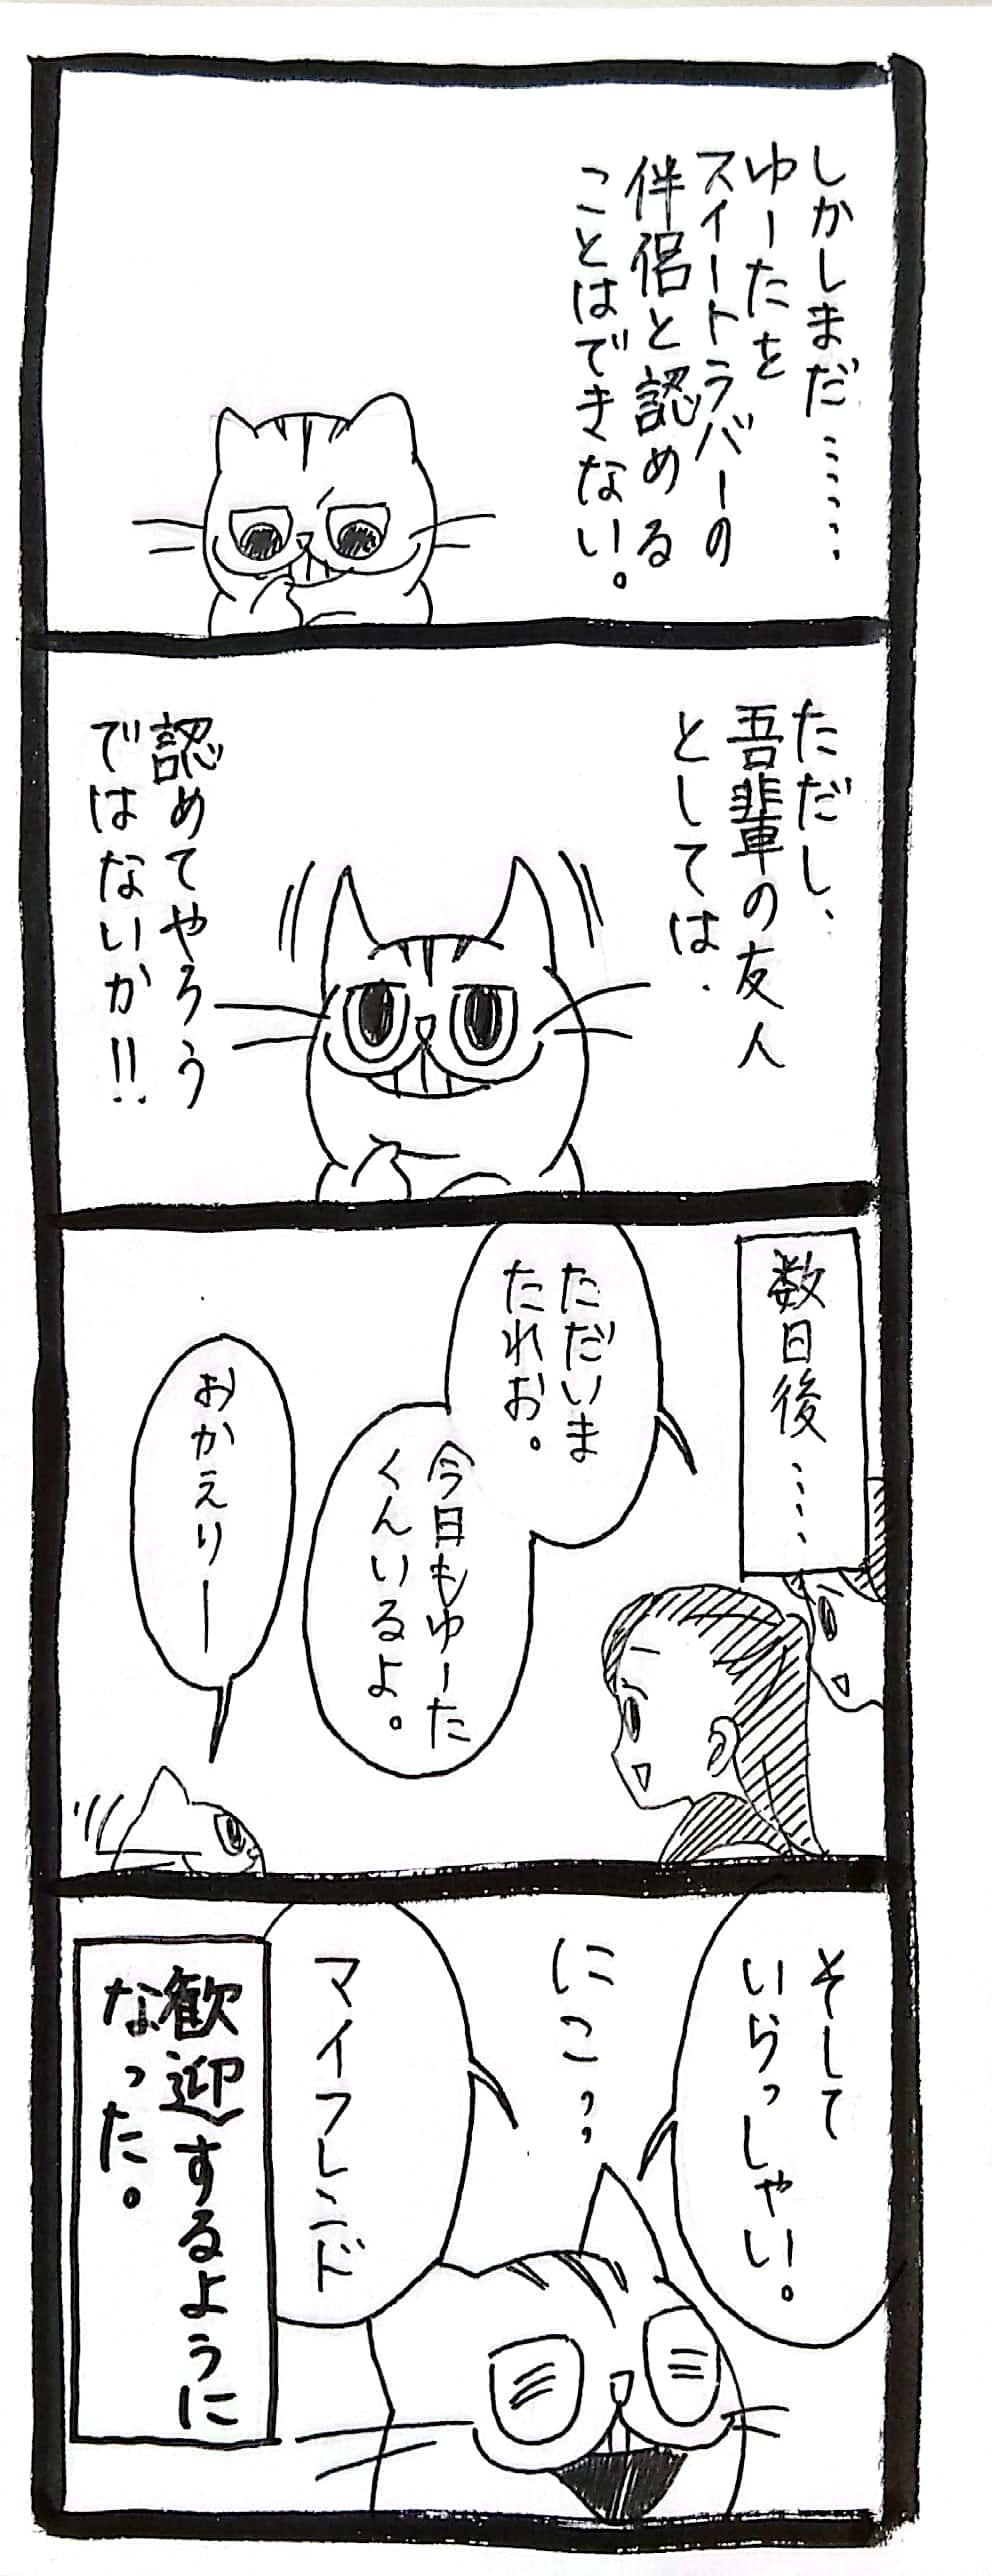 しかしまだ……
ゆーたを
スイートラバーの
伴侶と認める
ことはできない。
ただし、
吾輩の友人
としては、
認めてやろう
ではないか!!
数日後……
ただいま
たれお。
今日もゆーた
くんいるよ。
おかえりー
そして
いらっしゃい。
にこっ
マイフレンド
歓迎するように
なった。